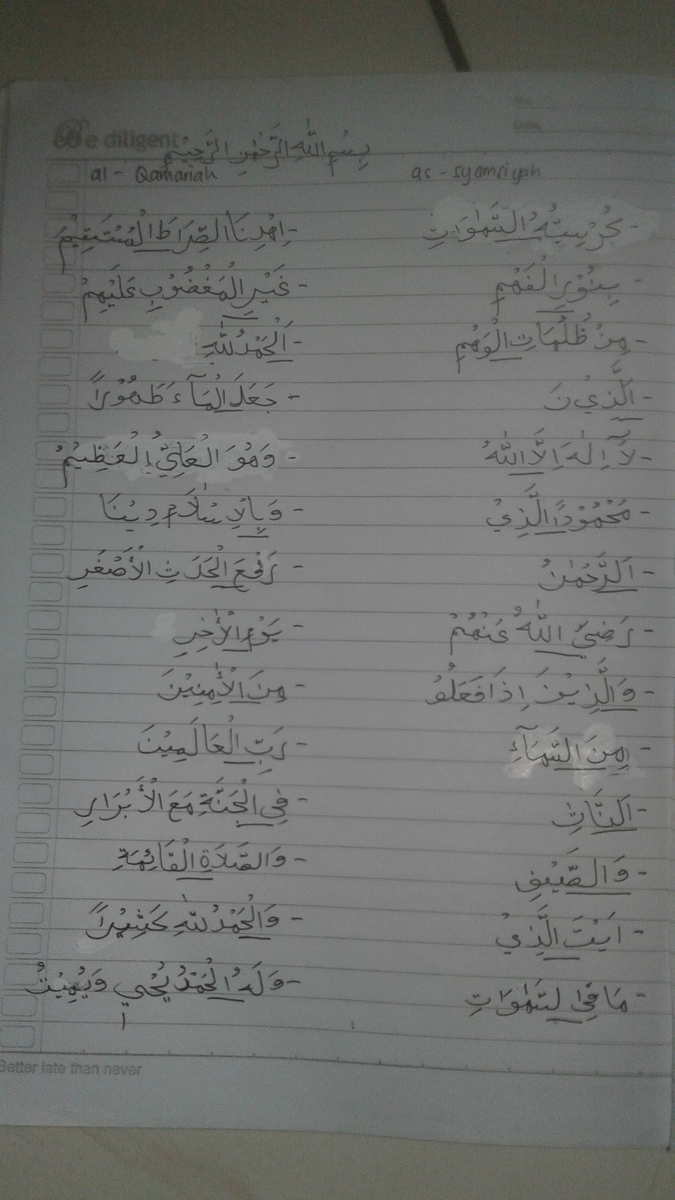 No:
Date:
Be diligent
بِسْمِ اللّٰهِ الرَّحْمٰنِ الرَّحِيْمِ
as - syamsiyah
- كُرْسِيُّهُ السَّمٰوَاتِ
- بِنُوْرِ الْفَهْمِ
- مِنْ ظُلُمَاتِ الْوَهْمِ
- اَلَّذِيْنَ
- لَآ اِلٰهَ اِلَّا اللّٰهُ
- مَحْمُوْدًا الَّذِيْ
- اَلرَّحْمٰنُ
- رَضِيَ اللّٰهُ عَنْهُمْ
- وَالَّذِيْنَ اِذَا فَعَلُوْ
- مِنَ السَّمَآءِ
- اَلنَّاسِ
- وَالصَّيْفِ
- اَيْتَ الَّذِيْ
- مَا فِى السَّمٰوَاتِ
al - Qamariah
- اِهْدِنَا الصِّرَاطَ الْمُسْتَقِيْمَ
- غَيْرِ الْمَغْضُوْبِ عَلَيْهِمْ
- اَلْحَمْدُ لِلّٰهِ
- جَعَلَ الْمَآءَ طَهُوْرًا
- وَهُوَ الْعَلِيُّ الْعَظِيْمُ
- وَبِالْاِسْلَامِ دِيْنًا
- رَفْعَ الْحَدَثِ الْأَصْغَرِ
- يَوْمِ الْأٰخِرِ
- مِنَ الْأٰمِنِيْنَ
- رَبِّ الْعَالَمِيْنَ
- فِي الْجَنَّةِ مَعَ الْأَبْرَارِ
- وَالصَّلَاةِ الْقَائِمَةِ
- وَالْحَمْدُ لِلّٰهِ كَثِيْرًا
- وَلَهُ الْحَمْدُ يُحْيِي وَيُمِيْتُ
Better late than never